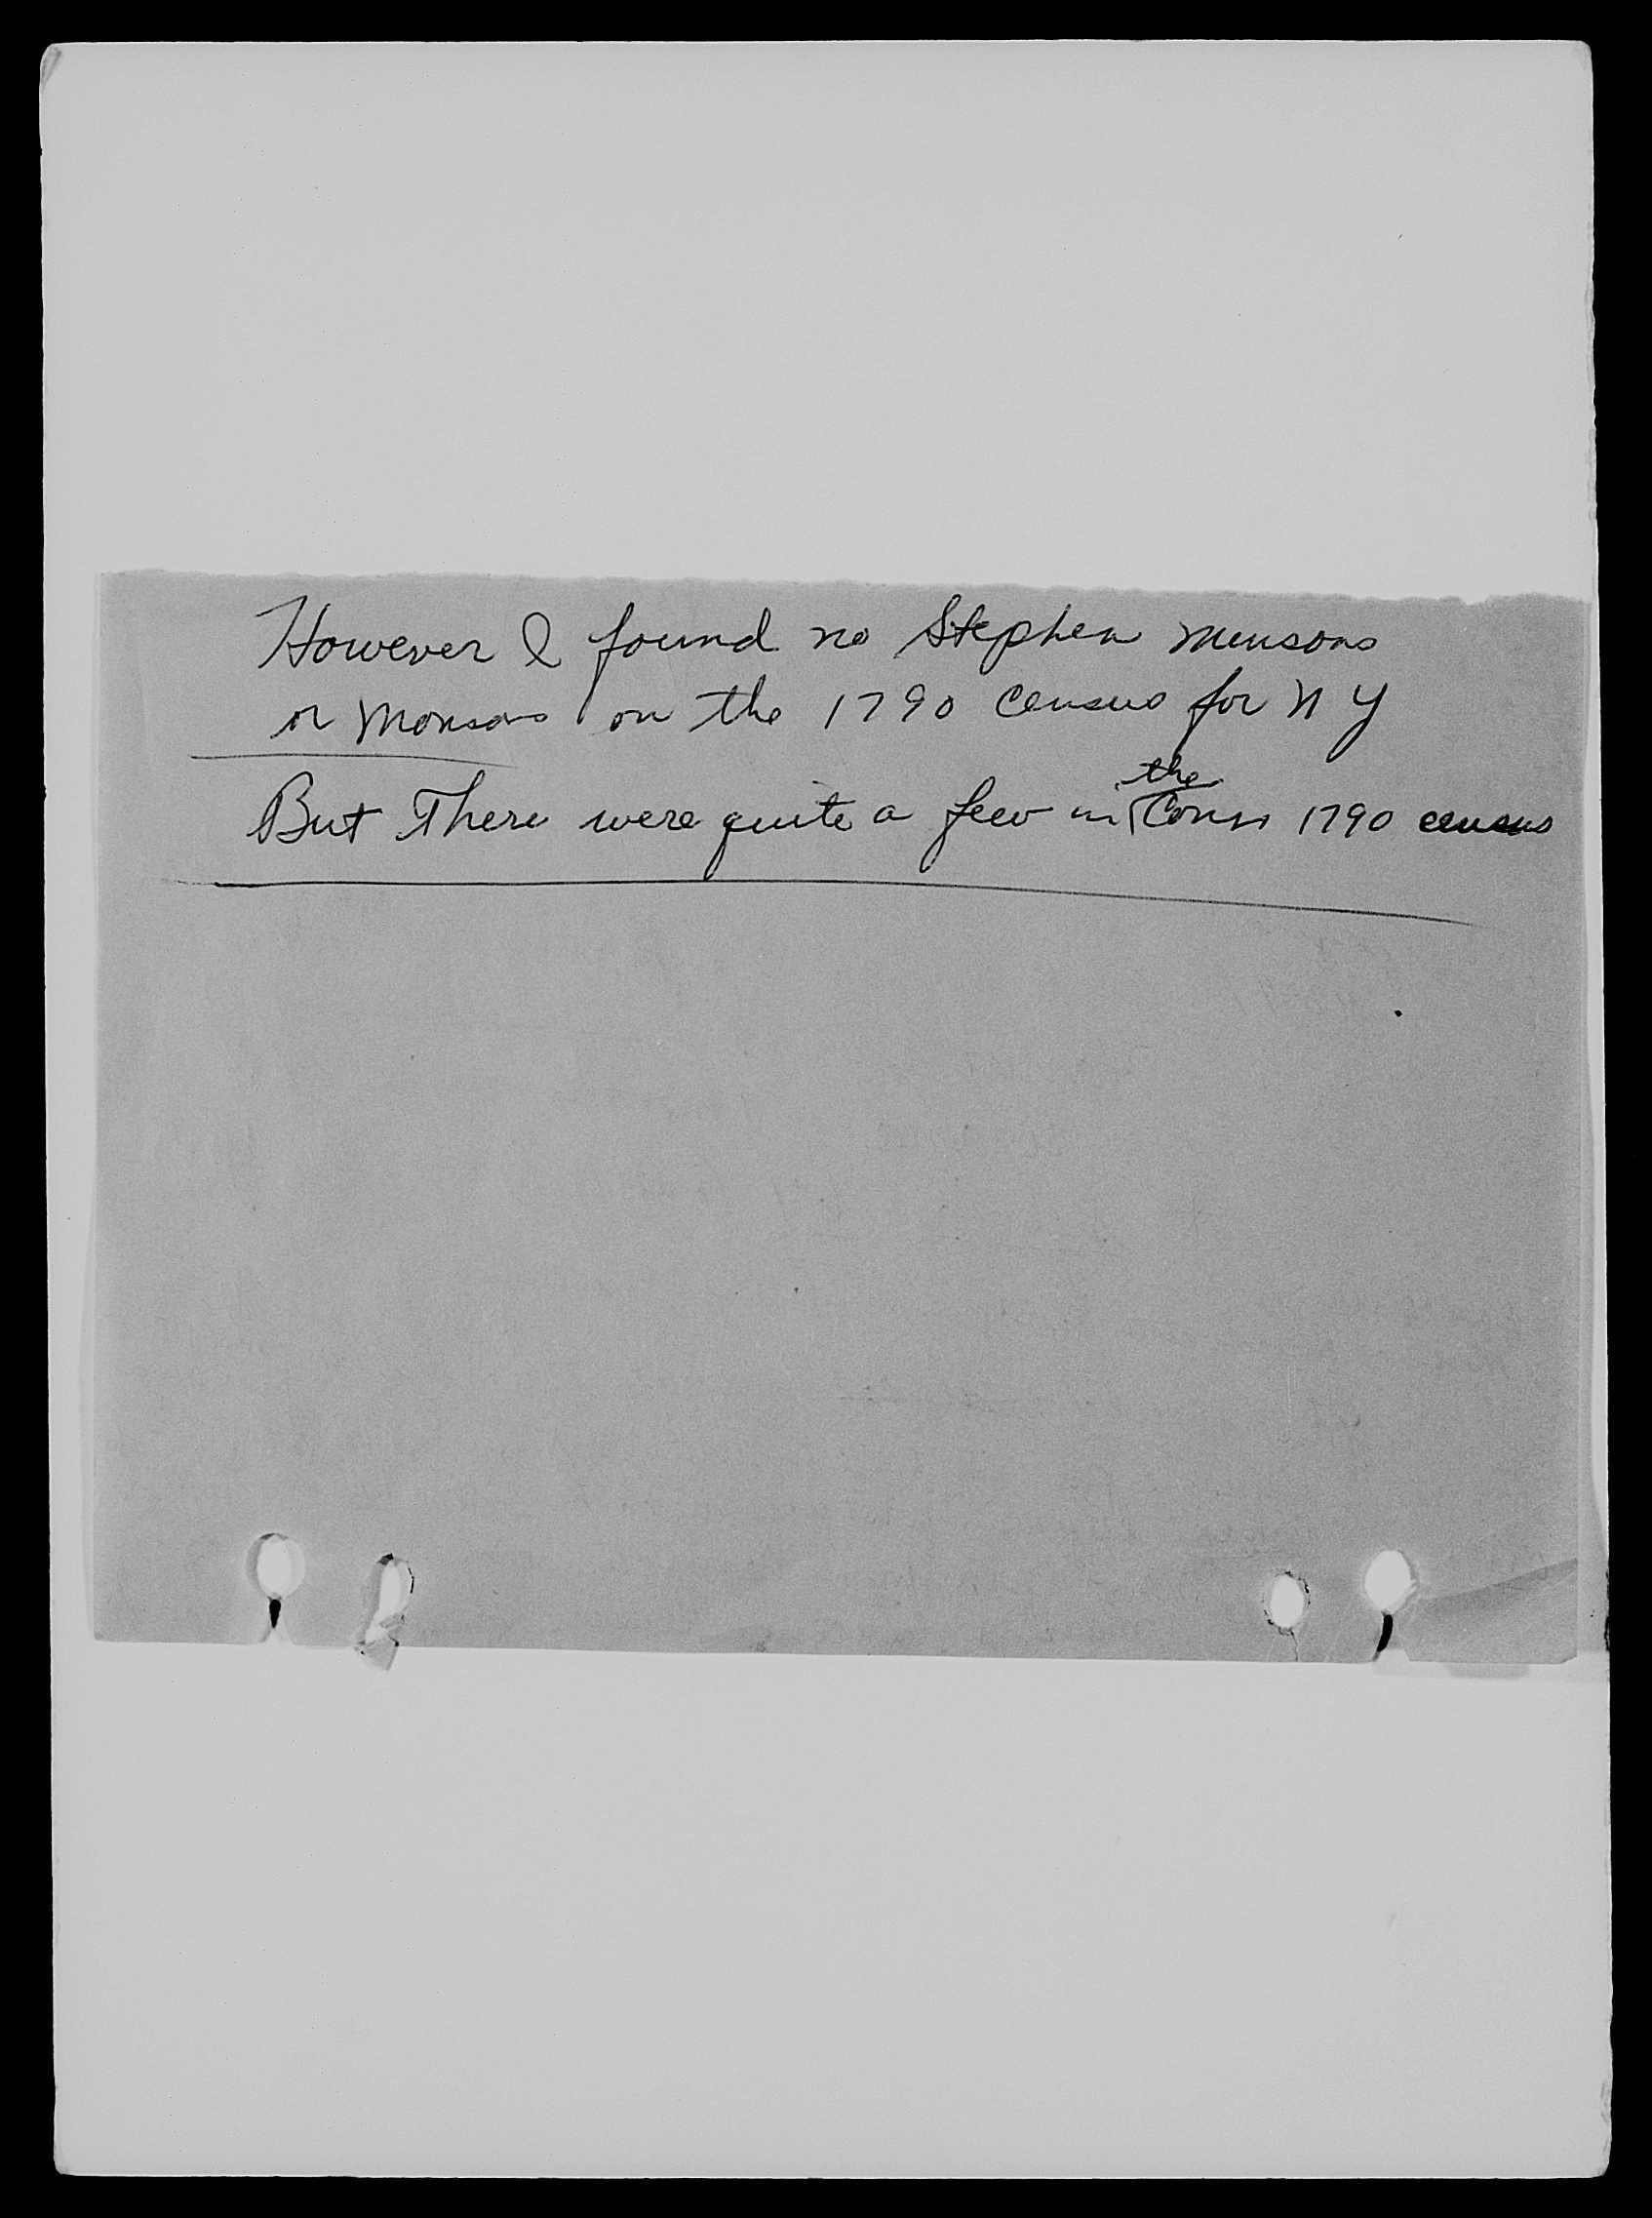 However I found no Stephen Munsons
or Monsons on the 1790 census for N Y
But There were quite a few in the Conn 1790 census